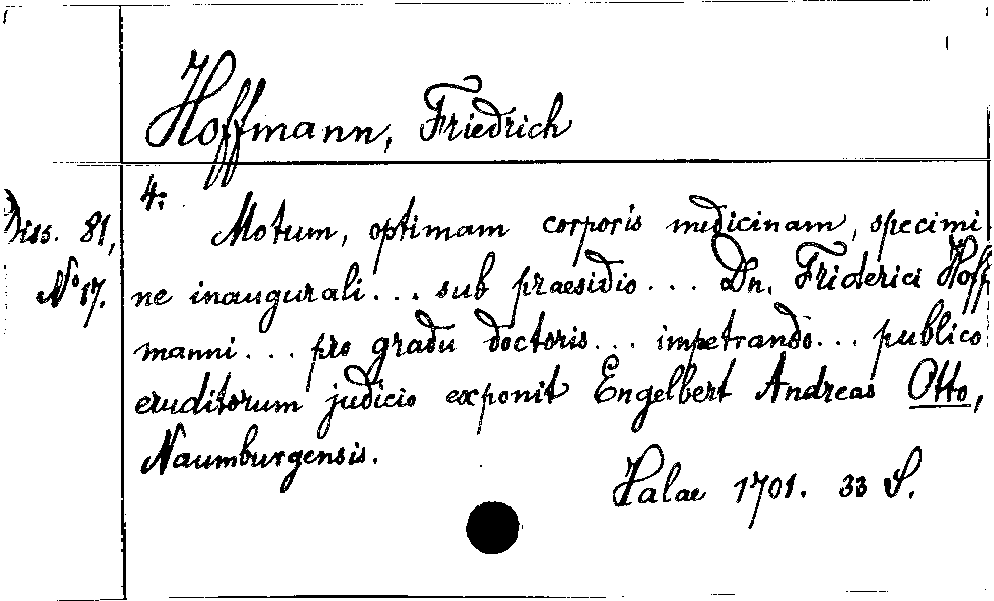 Hoffmann, Friedrich
4:
Diss. 81,
No 17.
Motum, optimam corporis medicinam, specimi
ne inaugurali... sub praesidio... Dn. Friderici Hoff
manni... pro gradu doctoris... impetrando... publico
eruditorum judicio exponit Engelbert Andreas Otto,
Naumburgensis.
Halae 1701. 33 S.